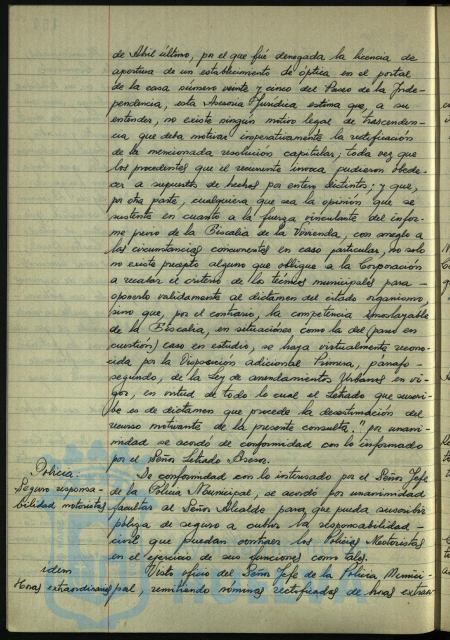 de Abril último, por el que fué denegada la licencia de
apertura de un establecimiento de óptica en el portal
de la casa número veinte y cinco del Paseo de la Inde-
pendencia, esta Asesoria Jurídica estima que, a su
entender, no existe ningún motivo legal de trascenden-
cia que deba motivar imperativamente la rectificación
de la mencionada resolución capitular; toda vez que
los precedentes que el recurrente invoca pudieron obede-
cer a supuestos de hechos por entero distintos; y que,
por otra parte, cualquiera que sea la opinión que se
sustente en cuanto a la fuerza vinculante del infor-
me previo de la Fiscalia de la Vivienda, con arreglo a
las circunstancias concurrentes en caso particular, no solo
no existe precepto alguno que obligue a la Corporación
a recabar el criterio de los técnicos municipales para -
oponerlo validamente al dictamen del citado organismo,
sino que, por el contrario, la competencia insoslayable
de la Fiscalia, en situaciones como la del (pareo en
cuestión) caso en estudio, se haya virtualmente recono-
cida por la Disposición adicional Primera, párrafo -
segundo, de la Ley de arrendamientos Urbanos en vi-
gor, en virtud de todo lo cual el Letrado que suscri-
be es de dictamen que procede la desestimación del
recurso motivante de la presente consulta." por unani-
midad se acordó de conformidad con lo informado
por el Señor Letrado Asesor.
Policia. De conformidad con lo interesado por el Señor Jefe
Seguro responsa- de la Policia Municipal, se acordó por unanimidad
bilidad motoristas facultar al Señor Alcalde para que pueda suscribir
poliza de seguro a cubrir la responsabilidad -
civil que puedan contraer los Policias Motoristas
en el ejercicio de sus funciones como tales.
idem Visto oficio del Señor Jefe de la Policia Munici-
Horas extraordinarias pal, remitiendo nominas rectificadas de horas extraor-